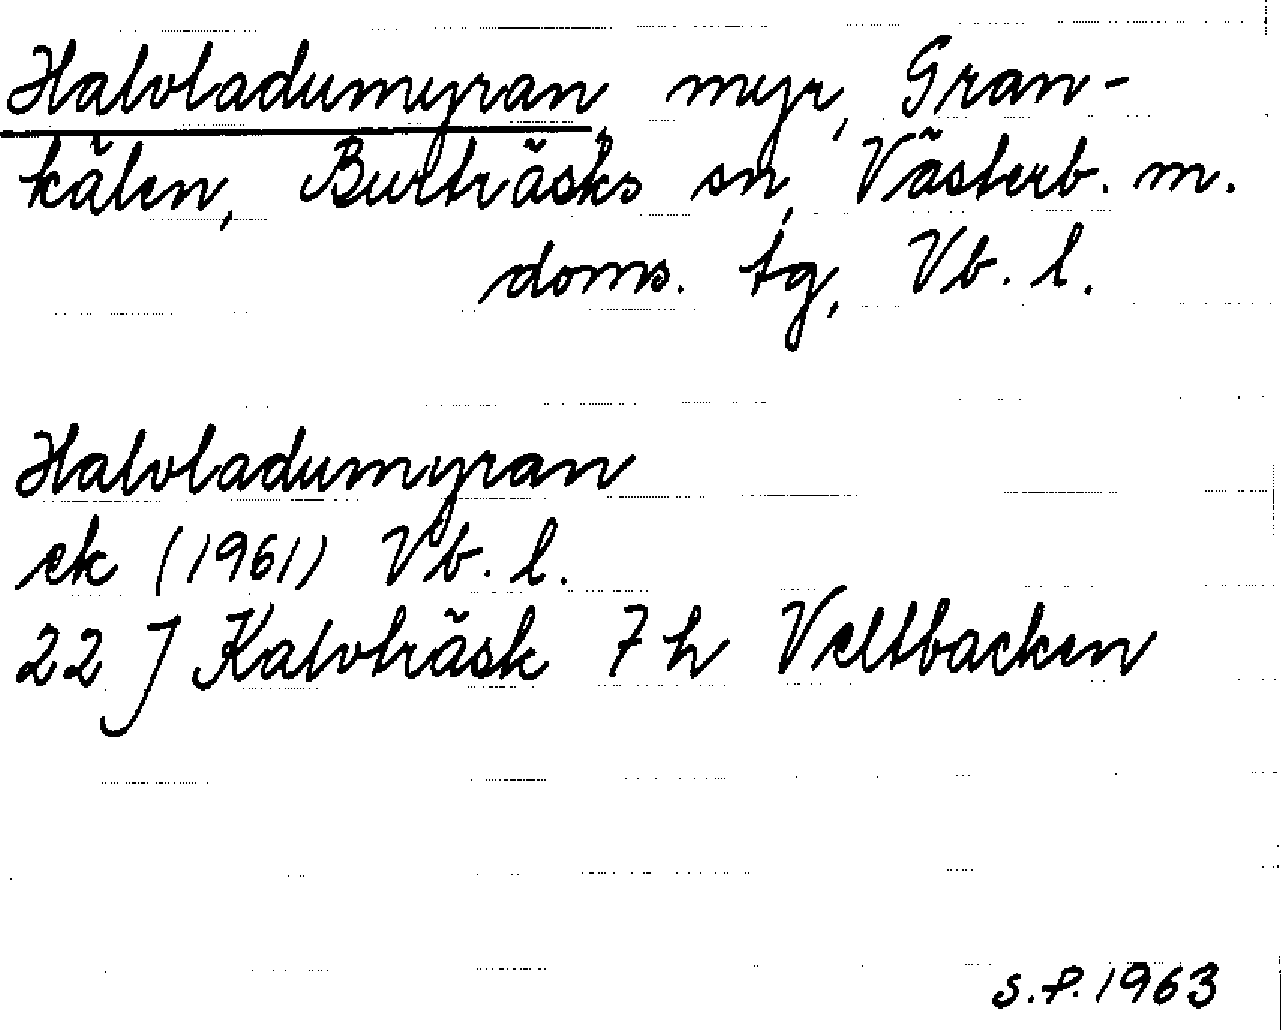 Halvladumyran, myr, Gran-
kälen, Burträsks sn, Västerb. m.
doms. tg, Vb. l.
Halvladumyran
ek (1961) Vb. l.
22 J Kalvträsk 7 h Veltbacken
S.P. 1963